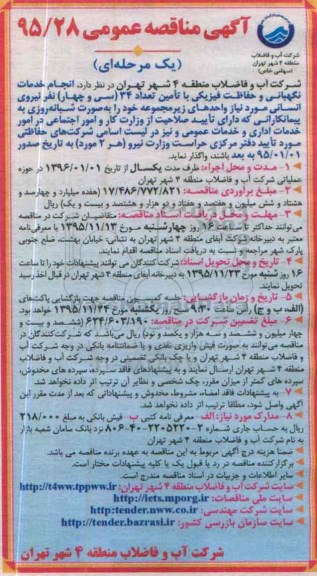 آگهی مناقصه عمومی ۹۵/۲۸
(یک مرحله‌ای)
شرکت آب و فاضلاب
منطقه ۴ شهر تهران
(سهامی خاص)
شرکت آب و فاضلاب منطقه ۴ شهر تهران در نظر دارد، انجام خدمات
نگهبانی و حفاظت فیزیکی با تأمین تعداد ۳۴ (سی و چهار) نفر نیروی
انسانی مورد نیاز واحدهای زیرمجموعه خود را به‌صورت شبانه‌روزی به
پیمانکارانی که دارای تأیید صلاحیت از وزارت کار و امور اجتماعی در امور
خدمات اداری و خدمات عمومی و نیز در لیست اسامی شرکت‌های حفاظتی
مورد تأیید دفتر مرکزی حراست وزارت نیرو (هر ۲ مورد) به تاریخ صدور
۹۵/۰۱/۰۱ به بعد باشند، واگذار نماید.
۱ - مدت و محل اجراء: ظرف مدت یکسال از تاریخ ۱۳۹۶/۰۱/۰۱ در حوزه
عملیاتی شرکت آب و فاضلاب منطقه ۴ شهر تهران
۲ - مبلغ برآوردی مناقصه: ۱۷/۴۸۶/۷۷۲/۸۲۱ (هفده میلیارد و چهارصد و
هشتاد و شش میلیون و هفتصد و هفتاد و دو هزار و هشتصد و بیست و یک) ریال
۳ - مهلت و محل دریافت اسناد مناقصه: متقاضیان شرکت در مناقصه
می‌توانند حداکثر تا ساعت ۱۶ روز چهارشنبه مورخ ۱۳۹۵/۱۱/۱۳ با معرفی‌نامه
معتبر به دبیرخانه شرکت آبفای منطقه ۴ شهر تهران به نشانی: خیابان بهشت، ضلع جنوبی
پارک شهر مراجعه و نسبت به دریافت اسناد مناقصه اقدام نمایند.
۴ - تاریخ و محل تحویل اسناد: شرکت‌کنندگان می‌توانند پیشنهادات خود را تا ساعت
۱۶ روز شنبه مورخ ۱۳۹۵/۱۱/۲۳ به دبیرخانه آبفای منطقه ۴ شهر تهران در قبال اخذ رسید
تحویل نمایند.
۵ - تاریخ و زمان بازگشایی: جلسه کمیسیون مناقصه جهت بازگشایی پاکت‌های
(الف، ب و ج) راس ساعت ۹:۳۰ صبح روز یکشنبه مورخ ۱۳۹۵/۱۱/۲۴ خواهد بود.
۶ - مبلغ تضمین شرکت در مناقصه: ۶۲۴/۶۰۳/۱۹۰ (ششصد و بیست و
چهار میلیون و ششصد و سه هزار و یکصد و نود) ریال می‌باشد که شرکت‌کنندگان در
مناقصه می‌توانند به صورت فیش واریزی نقدی و یا ضمانتنامه بانکی در وجه شرکت آب
و فاضلاب منطقه ۴ شهر تهران و یا چک بانکی تضمینی در وجه شرکت آب و فاضلاب
منطقه ۴ شهر تهران ارسال نمایند و به پیشنهادهای فاقد سپرده، سپرده های مخدوش،
سپرده های کمتر از میزان مقرر، چک شخصی و نظایر آن ترتیب اثر داده نخواهد شد.
۷ - به پیشنهادات فاقد امضاء، مشروط، مخدوش و پیشنهاداتی که بعد از مدت مقرر این
آگهی واصل شود، مطلقا ترتیب اثر داده نخواهد شد.
۸ - مدارک مورد نیاز: الف - معرفی نامه کتبی ب - فیش بانکی به مبلغ ۲۱۸/۰۰۰
ریال به حساب جاری شماره ۲-۲۲۰۵۲۲۰-۴۰-۸۰۶ نزد بانک سامان شعبه بازار
به نام شرکت آب و فاضلاب منطقه ۴ شهر تهران
ضمنا هزینه درج آگهی مربوط به این مناقصه به عهده برنده مناقصه می باشد.
برگزارکننده مناقصه در رد یا قبول یک یا کلیه پیشنهادات مختار است.
سایر اطلاعات و جزییات در اسناد مناقصه مندرج است.
سایت شرکت آب و فاضلاب منطقه ۴ شهر تهران: http://t4ww.tppww.ir
سایت ملی مناقصات: http://iets.mporg.ir
سایت شرکت مهندسی: http:tender.nww.co.ir
سایت سازمان بازرسی کشور: http://tender.bazrasi.ir
شرکت آب و فاضلاب منطقه ۴ شهر تهران